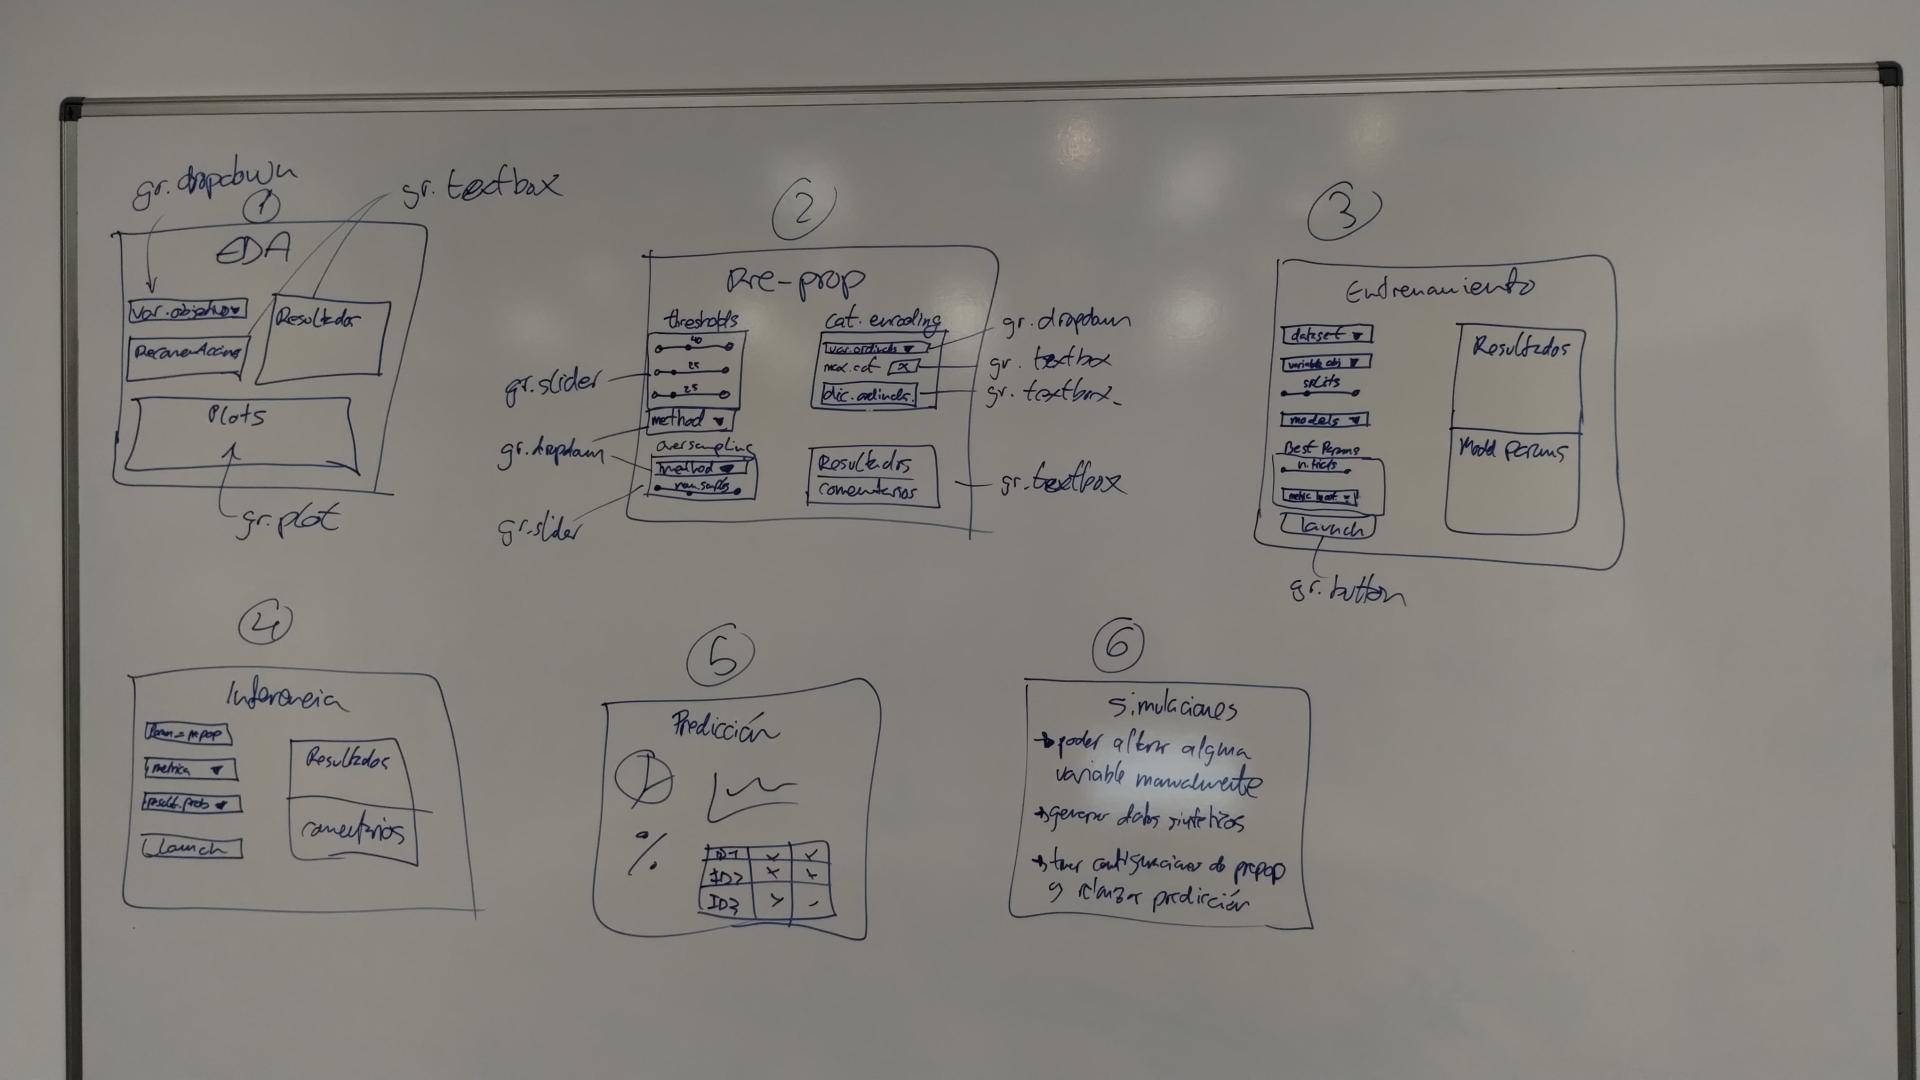 gr.dropdown
gr.textbox
1
EDA
var.objetivo
Resultados
Plots
gr.plot
2
Pre-prop
thresholds
40
25
25
method
oversampling
method
cat. encoding
var.ordinals
max.cat x
dic.ordinals.
Resultados
comentarios
gr.slider
gr.dropdown
gr.slider
gr.dropdown
gr. textbox
gr. textbox
gr.textbox
3
Entrenamiento
dataset
variable obj
splits
models
Best Params
launch
Resultados
Model params
gr.button
4
Inferencia
metrica
Launch
Resultados
comentarios
5
Predicción
%
ID1
ID2 x
ID3
6
Simulaciones
poder alterar alguna
variable manualmente
generar datos sinteticos
configuraciones de prepop
y relanzar predicción